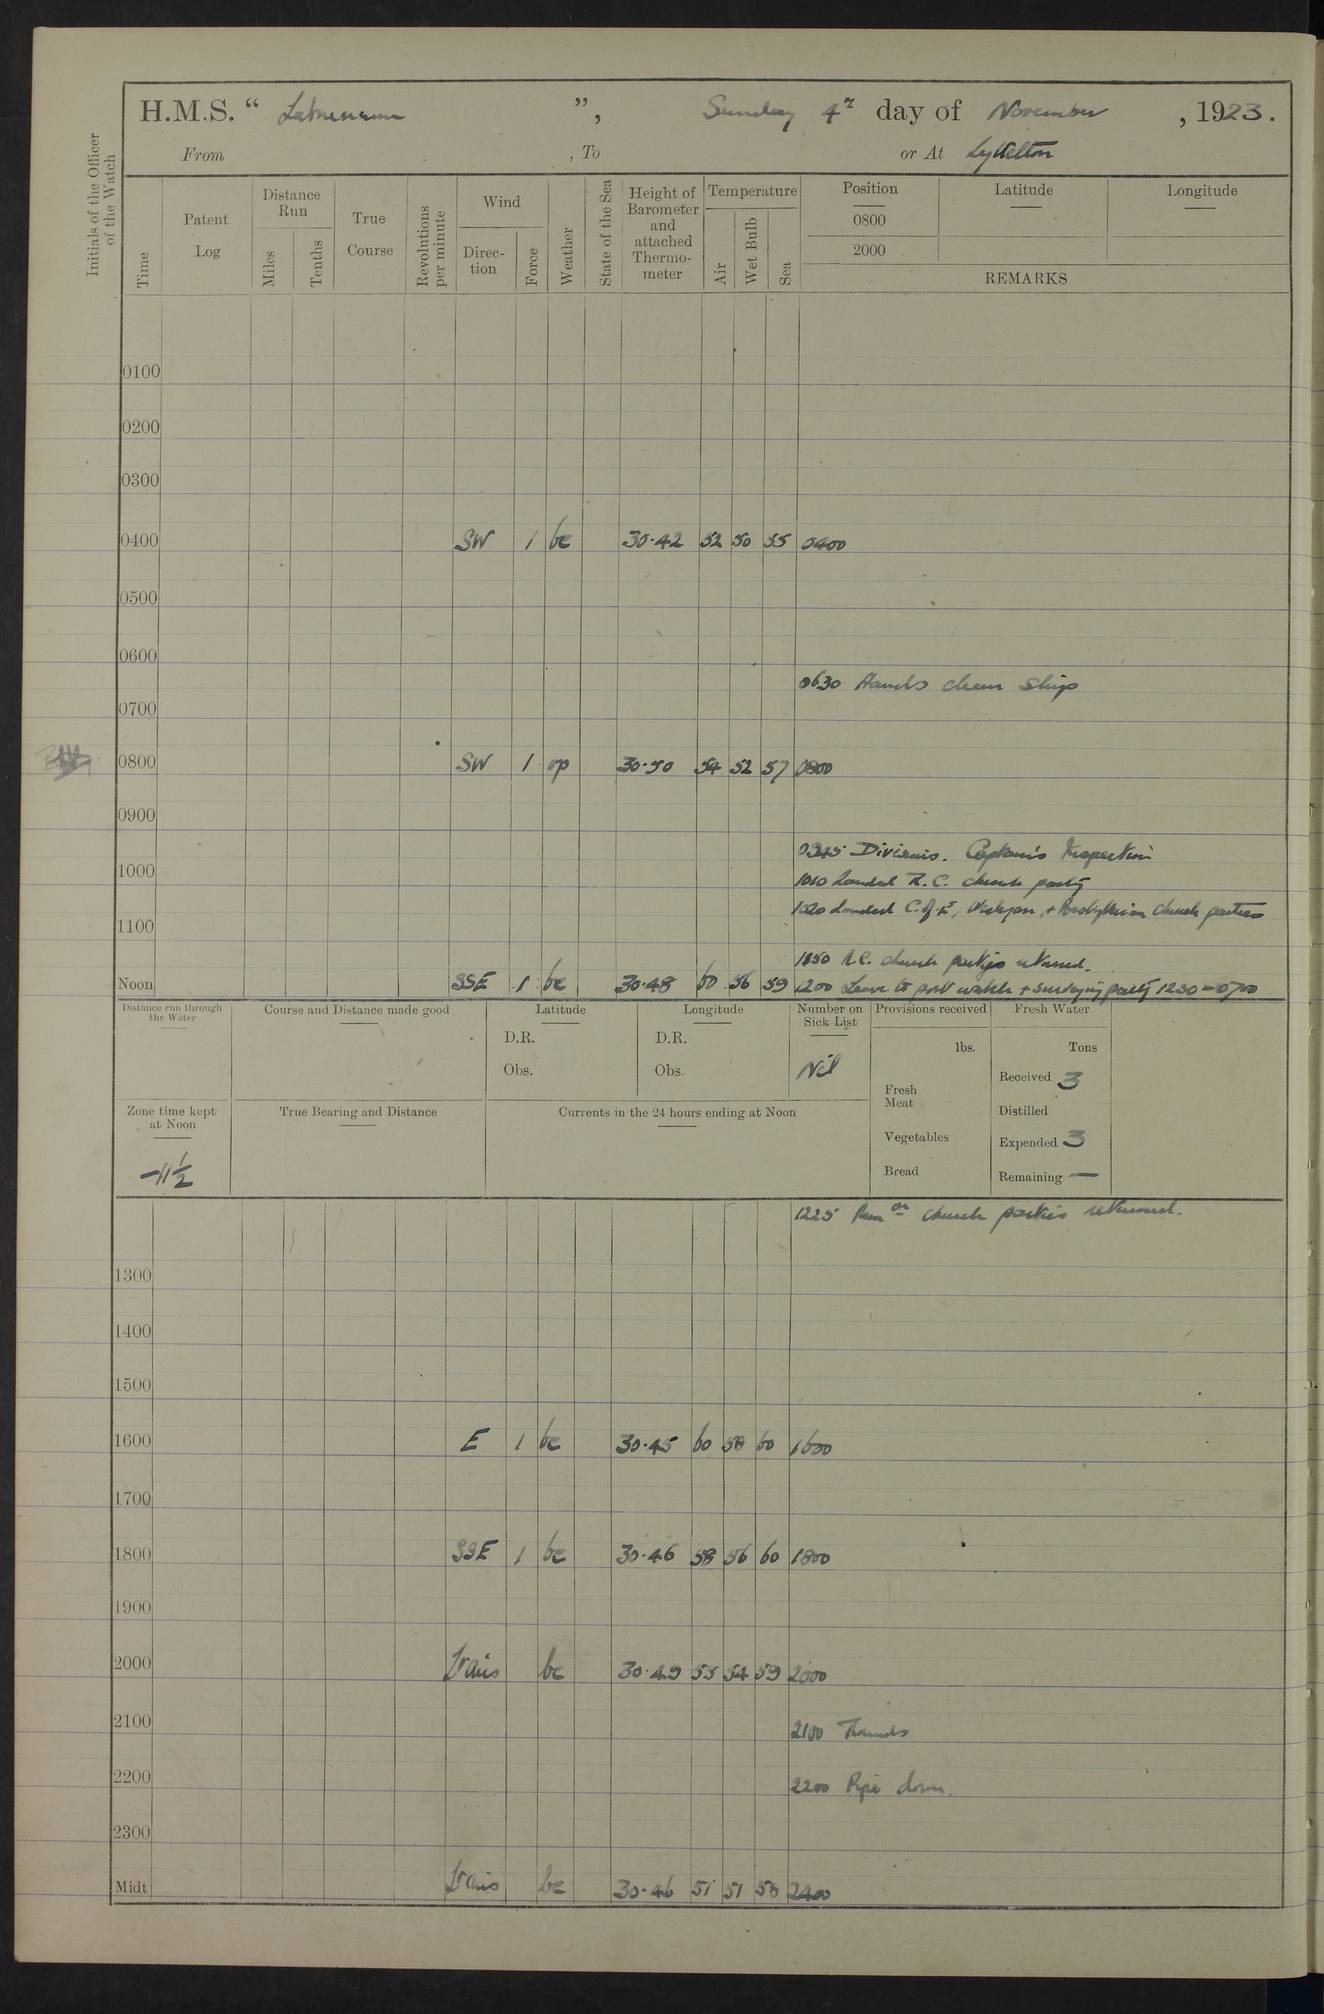 H.M.S. “ Laburnum ”, Sunday 4th day of November , 1923.
From , To or At Lyttelton
Initials of the Officer of the Watch
Time
Patent Log
Distance Run
Miles
Tenths
True Course
Revolutions per minute
Wind
Direc-tion
Force
Weather
State of the Sea
Height of Barometer and attached Thermo-meter
Temperature
Air
Wet Bulb
Sea
Position Latitude Longitude
0800
2000
REMARKS
0100
0200
0300
0400 SW 1 bc 30.42 52 50 55 0400
0500
0600
0630 Hands clean Ship
0700
0800 SW 1 op 30.50 54 52 57 0800
0900
0945 Divisions. Captain's Inspection
1000
1010 Landed R.C. church party
1020 Landed C. of E, Wesleyan, + Presbyterian church parties
1100
R.C. church partys returned.
Noon SSE 1 bc 30.48 60 56 59 1200 Leave to port watch + surveying party 1230 - 0700
Distance run through the Water
Course and Distance made good
Latitude
D.R.
Obs.
Longitude
D.R.
Obs.
Number on Sick List
Nil
Provisions received
lbs.
Fresh Meat
Vegetables
Bread
Fresh Water
Tons
Received 3
Distilled
Expended 3
Remaining —
Zone time kept at Noon
-11½
True Bearing and Distance
Currents in the 24 hours ending at Noon
1225 church parties returned.
1300
1400
1500
1600 E 1 bc 30.45 60 58 60 1600
1700
1800 SSE 1 bc 30.46 58 56 60 1800
1900
2000 Lt airs bc 30.49 55 54 59 2000
2100
2100 Rounds
2200
2200 Pipe down.
2300
Midt Lt airs bc 30.46 51 51 58 2400